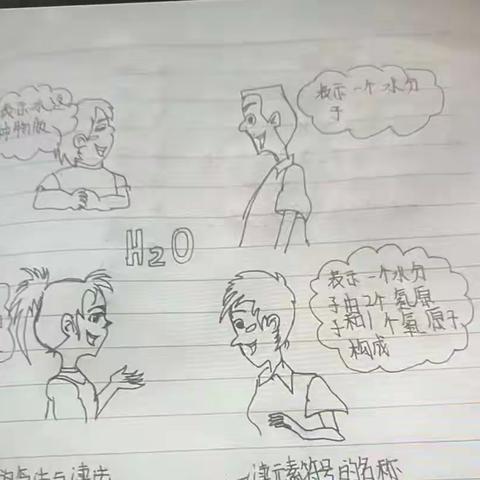 表示水这
种物质
表示一个水分
子
H₂O
表示一个水分
子由2个氢原
子和1个氧原子
构成
与读法
读元素符号的名称